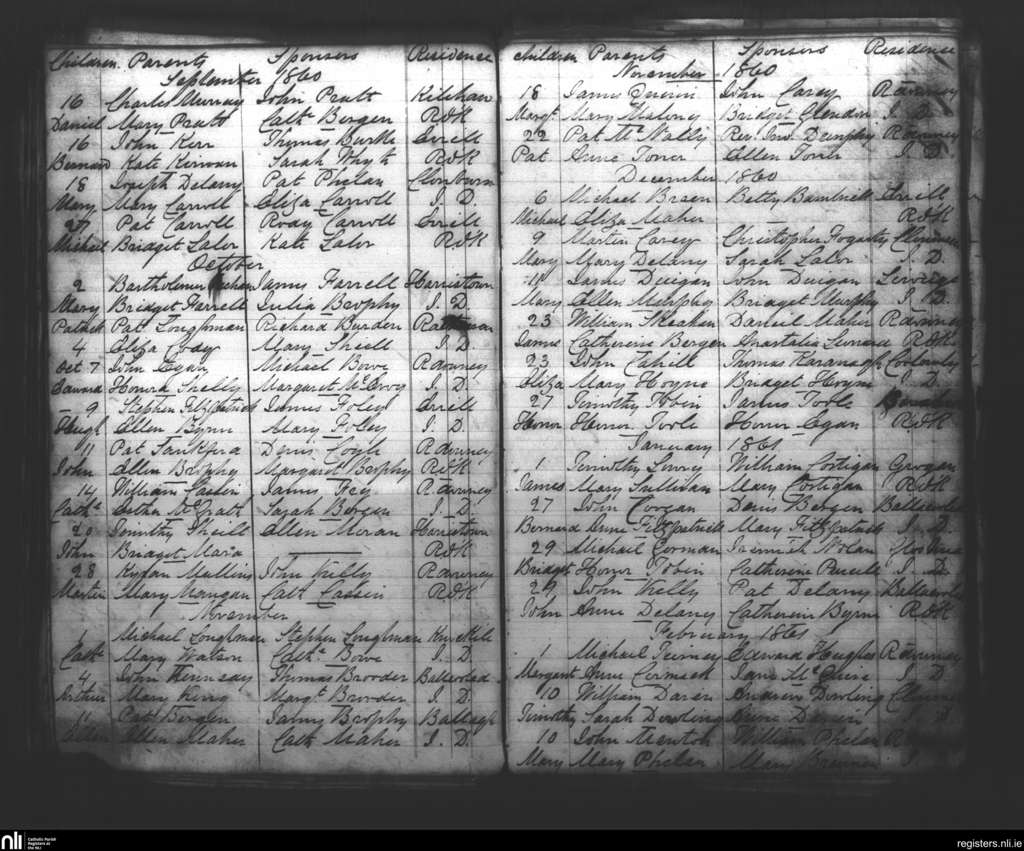 Children Parents Sponsors Residence
September 1860
16 Charles Murray John Pratt Kilchan
Daniel Mary Pratt Cath. Bergen R&K
16 John Kerr Thomas Burke Errill
Bernard Kate Kirwan Sarah Whyte R&K
18 Joseph Delany Pat Phelan
Mary Mary Carroll Eliza Carroll I. D.
Pat Carroll Rody Carroll Errill
Michael Bridget Lalor Kate Lalor R&K
October
2 Bartholomew James Farrell Harristown
Mary Bridget Farrell Julia Brophy I. D.
Patrick Pat Loughman Richard Burden
4 Eliza Cody Mary Sheill I. D.
Oct 7 John Egan Michael Bowe Rdowney
Edward Honora Shelly Margaret McEvoy I. D.
9 Stephen Fitzpatrick James Foley Errill
Hugh Ellen Byrne Mary Foley I. D.
11 Pat Denis Rdowney
John Ellen Brophy Margaret Brophy R&K
14 William Cassin James Rdowney
Cathe. Esther McGrath Sarah Bergen I. D.
20 Timothy Sheill Ellen Moran Harristown
John Bridget Mara R&K
28 Kyran Mullins John Kelly Rdowney
Martin Mary Mangan Cath Cassin R&K
November
1 Michael Loughman Stephen Loughman
Cath. Mary Watson Cathe. Bowe I. D.
4 John Kennedy Thomas Brooder
Arthur Mary King Margt. Brooder I. D.
11 Pat Bergen James Brophy Ballagh
Ellen Ellen Maher Cath Maher I. D.
Children Parents Sponsors Residence
November 1860
18 James John Carey Rdowney
Margt. Mary Maloney Bridget Glendon I. D.
22 Pat Mc Nally Rev. Jno. Dunphy Rdowney
Pat Anne Toner Ellen I. D.
December 1860
6 Michael Breen Betty Errill
Michael Eliza Maher R&K
9 Martin Carey Christopher Fogarty
Mary Mary Delany Sarah Lalor I. D.
11 James Duigan John Duigan
Mary Ellen Murphy Bridget Murphy I. D.
23 William Meahen Daniel Maher Rdowney
James Catherine Bergen Anastatia R&K
23 John Cahill Thomas Kavanagh
Eliza Mary Hoyne Bridget Hoyne I. D.
27 Timothy Tobin James Toole
Honor Honor Toole Honor Egan R&K
January 1861
1 Timothy William Costigan Grogan
James Mary Sullivan Mary Costigan R&K
27 John Denis Bergen
Bernard Anne Fitzpatrick Mary Fitzpatrick I. D.
29 Michael Gorman Jeremiah Nolan
Bridget Honor Tobin Catherine Purcell I. D.
29 John Kelly Pat Delany
John Anne Delany Catherine Byrne R&K
February 1861
1 Michael Edward Hughes Rdowney
Margaret Anne Cormack Jane McGuire I. D.
10 William Andrew Dowling
Timothy Sarah Dowling Anne
10 John William Phelan
Mary Mary Phelan Mary Brennan I.
nli Catholic Parish Registers at the NLI
registers.nli.ie